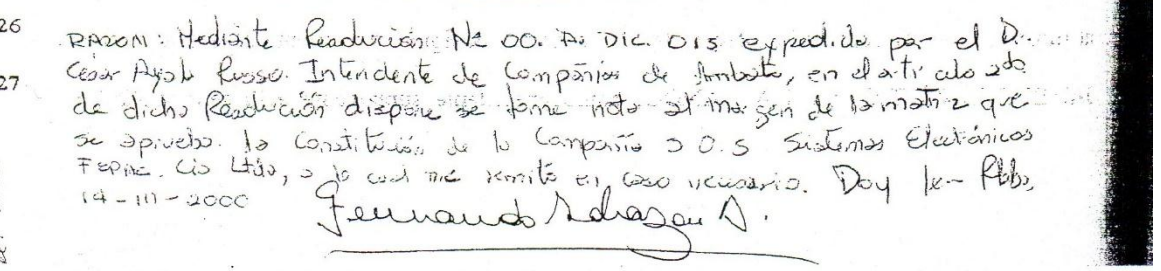 26
RAZON: Mediante Resolución Nº 00. A. DIC. 015 expedida por el D.
27
César Ayala Russo. Intendente de Compañías de Ambato, en el artículo 2do
de dicha Resolución dispone se tome nota al margen de la matriz que
se aprueba la Constitución de la Compañía S.O.S Sistemas Electrónicos
Cia Ltda, a la cual me remito en caso necesario. Doy fe-
14-III-2000
Fernando A.